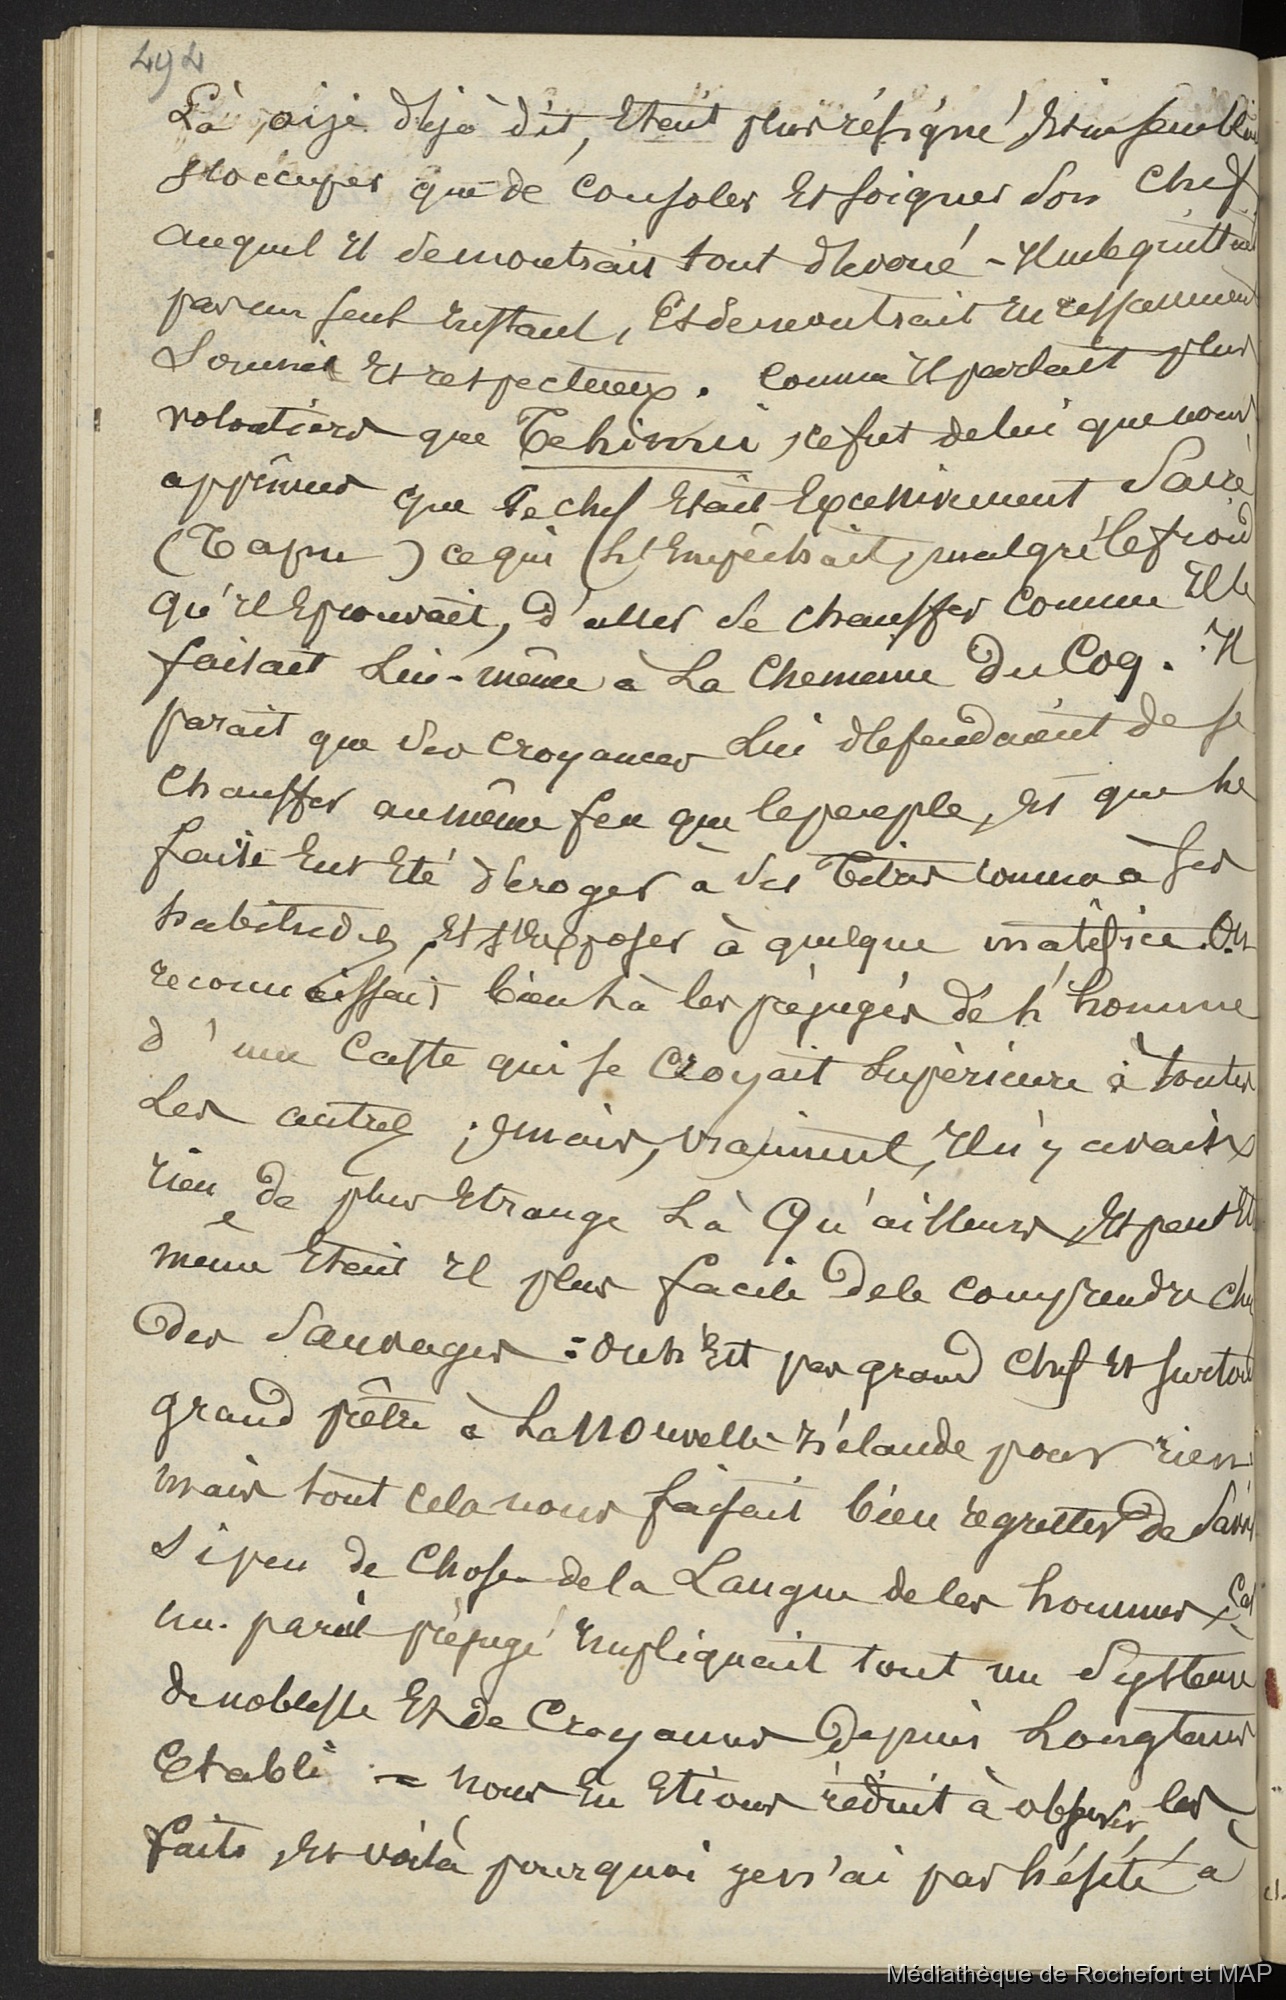 494
Là, aije déjà dit, était plus résigné, et ne semblait
s'occuper que de consoler et soigner son chef
auquel il se montrait tout dévoué - Il ne le quittait
pas un seul instant, et se montrait incessamment
soumis et respectueux. Comme il parlait plus
volontiers que Tehinui, ce fut de lui que nous
apprîmes que le chef était excessivement sacré
(Tapu) ce qui l'empêchait, malgré le froid
qu'il éprouvait, d'aller se chauffer comme il le
faisait lui-même à la cheminée du Coq. Il
parait que ses croyances lui défendaient de se
chauffer au même feu que le peuple, et que le
faire eut été déroger à ses comme à ses
habitudes, et s'exposer à quelque maléfice. On
reconnaissait bien là les préjugés de l'homme
d'une caste qui se croyait supérieure à toutes
les autres ; mais, vraiment, il n'y avait
rien de plus étrange là qu'ailleurs, et peut être
même était il plus facile de le comprendre chez
des sauvages : on n'est pas grand chef et surtout
grand prêtre à la Nouvelle-Zélande pour rien
mais tout cela nous faisait bien regretter de savoir
si peu de chose de la langue de ces hommes, car
un pareil préjugé impliquait tout un système
de noblesse et de croyances depuis longtems
établi - nous en étions réduit à observer les
faits, et voilà pourquoi je n'ai pas hésité à
Médiathèque de Rochefort et MAP